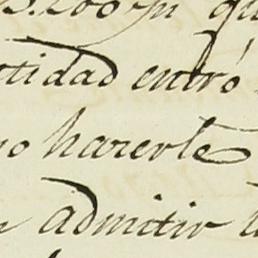 qu
tidad entró
no hacerle
admitir